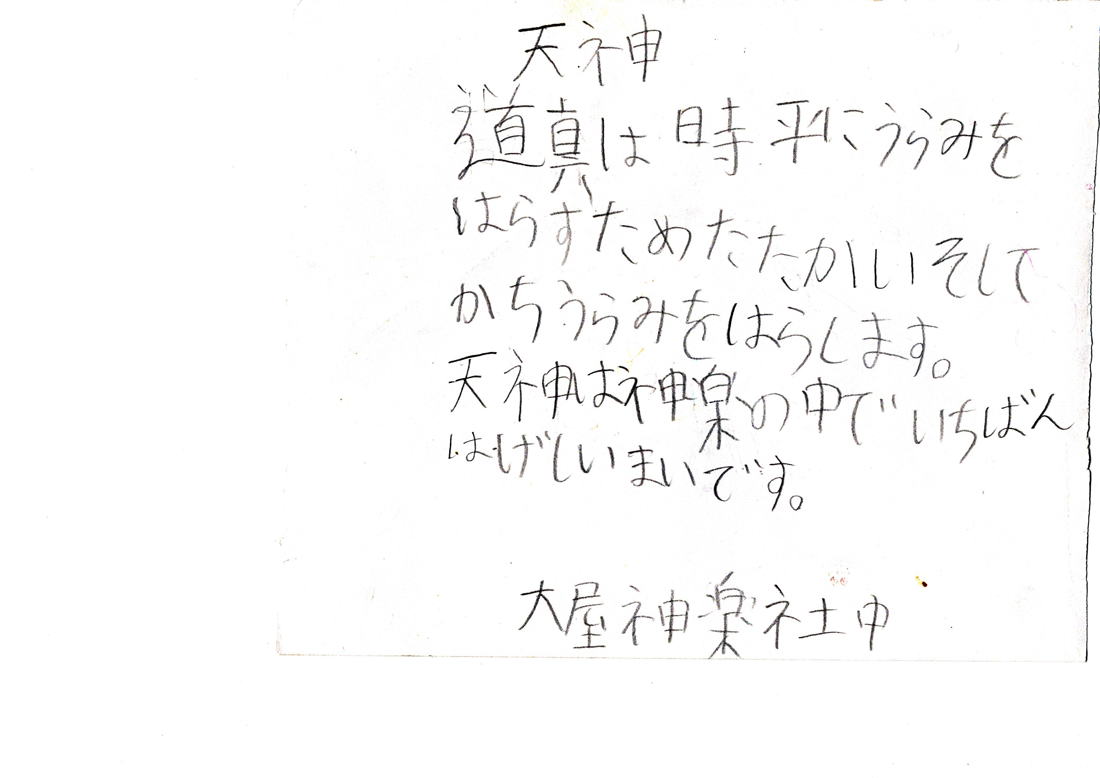 天神
道真は時平にうらみを
はらすためたたかいそして
かちうらみをはらします。
天神は神楽の中でいちばん
はげしいまいです。
大屋神楽社中